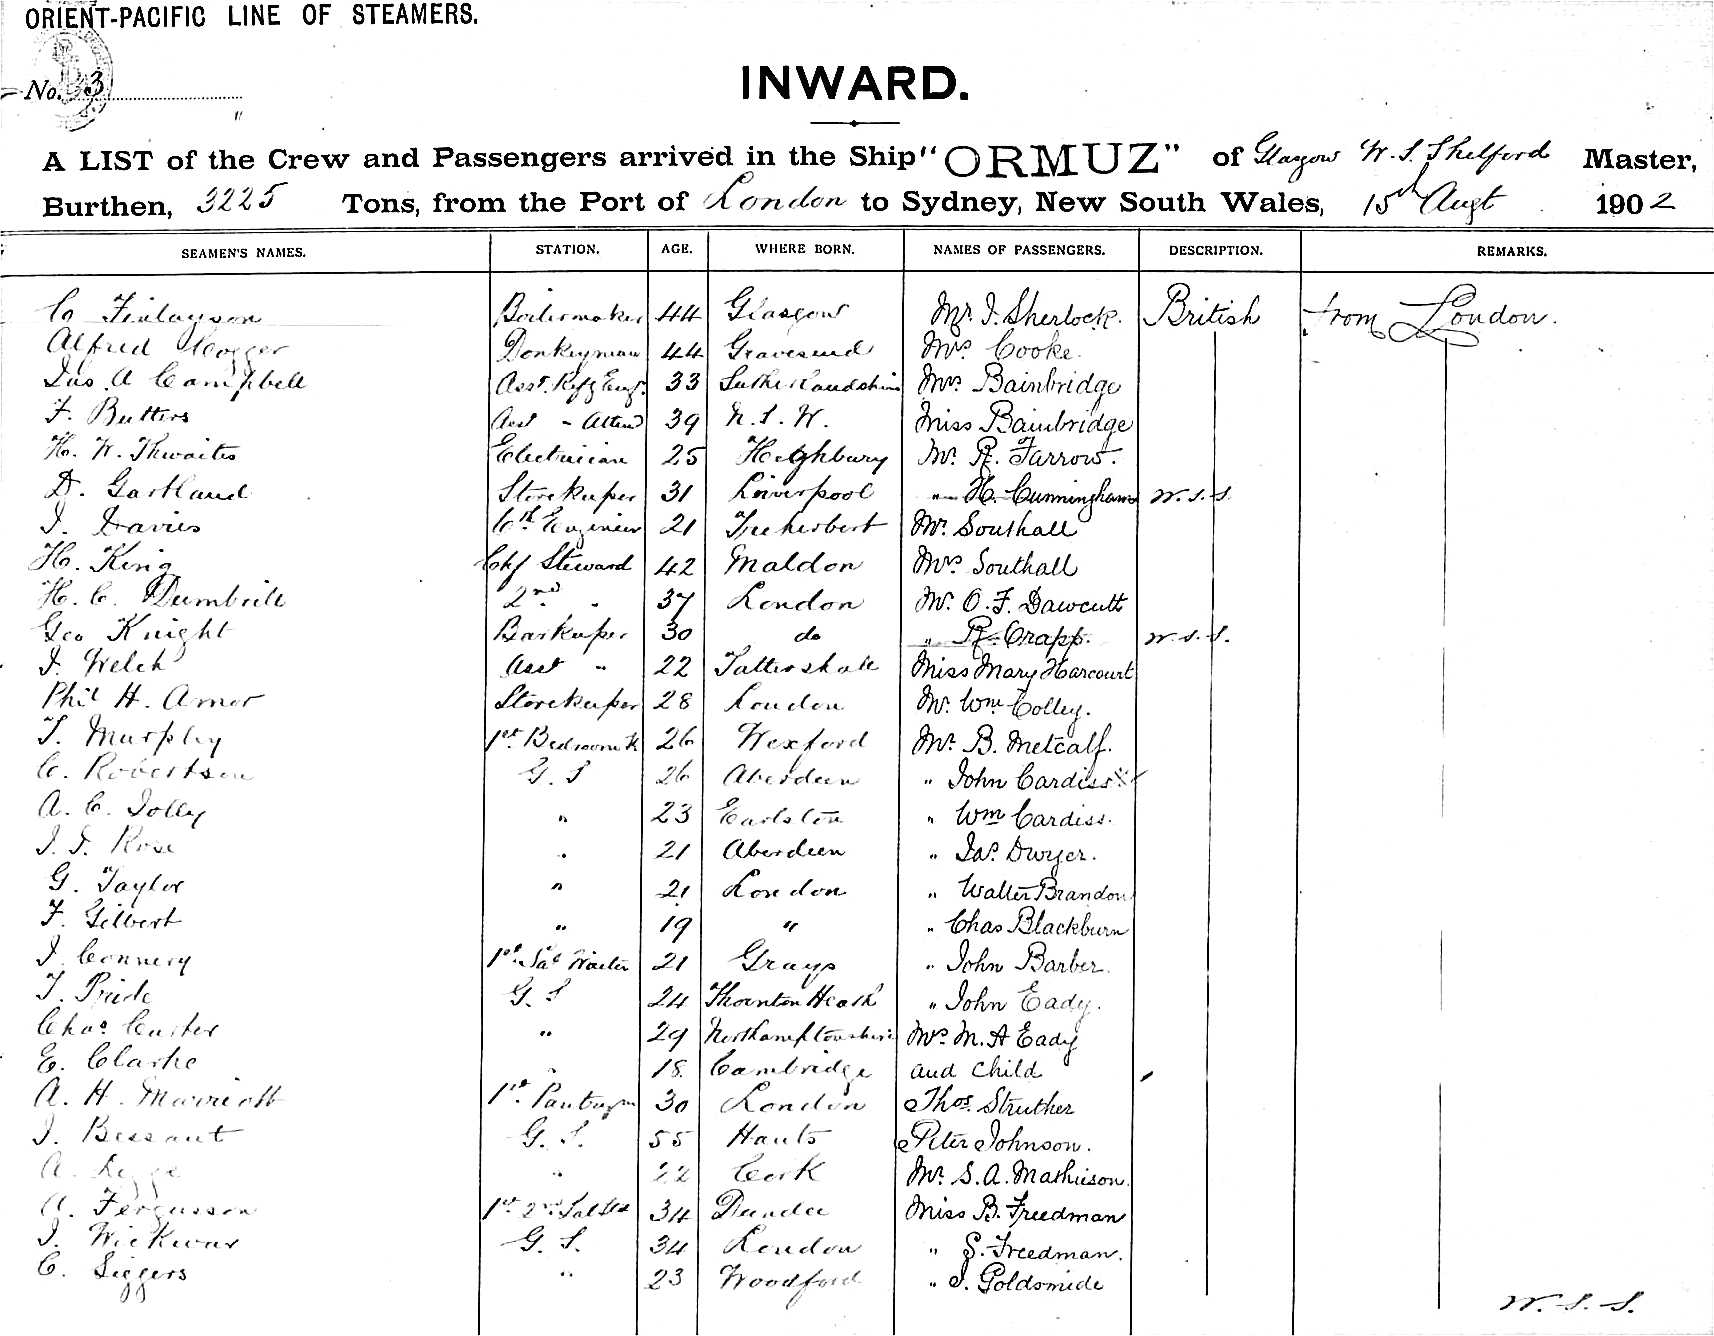 ORIENT-PACIFIC LINE OF STEAMERS.
No. 33
INWARD.
A LIST of the Crew and Passengers arrived in the Ship "ORMUZ" of Glasgow W. S. Shelford Master,
Burthen, 3225 Tons, from the Port of London to Sydney, New South Wales, 15th Augt 1902
SEAMEN'S NAMES. STATION. AGE. WHERE BORN. NAMES OF PASSENGERS. DESCRIPTION. REMARKS.
C Finlayson Boilermaker 44 Glasgow Mr. J. Sherlock. British from London.
Alfred Cogger Donkeyman 44 Gravesend Mrs Cooke.
Jas A Campbell Asst. Refg Engr. 33 Sutherlandshire Mrs Bainbridge
F. Butters Asst " Attend 39 N. S. W. Miss Bainbridge
H. W. Thwaites Electrician 25 Highbury Mr. R. Farrow.
D. Gartland Storekeeper 31 Liverpool " H. Cunningham W. S. S.
J. Davies 6th Engineer 21 Treherbert Mr. Southall
H. King Chf Steward 42 Maldon Mrs Southall
H. C. Dumbrill 2nd " 37 London Mr. O. F. Dawcutt
Geo Knight Barkeeper 30 do " R. Crapp. W. S. S.
J. Welch Asst " 22 Tattershall Miss Mary Harcourt
Phil H. Amor Storekeeper 28 London Mr. Wm Colley.
T. Murphy 1st. Bedroom 26 Wexford Mr. B. Metcalf.
C. Robertson G. S 26 Aberdeen " John Cardiss
A. C. Jolly " 23 Earlston " Wm Cardiss.
J. F. Rose " 21 Aberdeen " Jas. Dwyer.
G. Taylor " 21 London " Walter Brandon
F. Gilbert " 19 " " Chas Blackburn
J. Connery 1st. Sal Waiter 21 Grays " John Barber.
T. Pride G. S 24 Thornton Heath " John Eady.
Chas Custer " 29 Northamptonshire Mrs M. A Eady
E. Clarke " 18 Cambridge and Child
A. H. Marriott 1st. Pantrymn 30 London Thos. Struther
J. Bessant G. S. 55 Hants Peter Johnson.
A. Legge " 22 Cork Mr. S. A. Mathieson.
A. Fergusson 1st 2nd Sal Std 34 Dundee Miss B. Freedman
J. Wickwar G. S. 34 London " S. Freedman.
C. Siggers " 23 Woodford " J. Goldsmide
W. S. S.